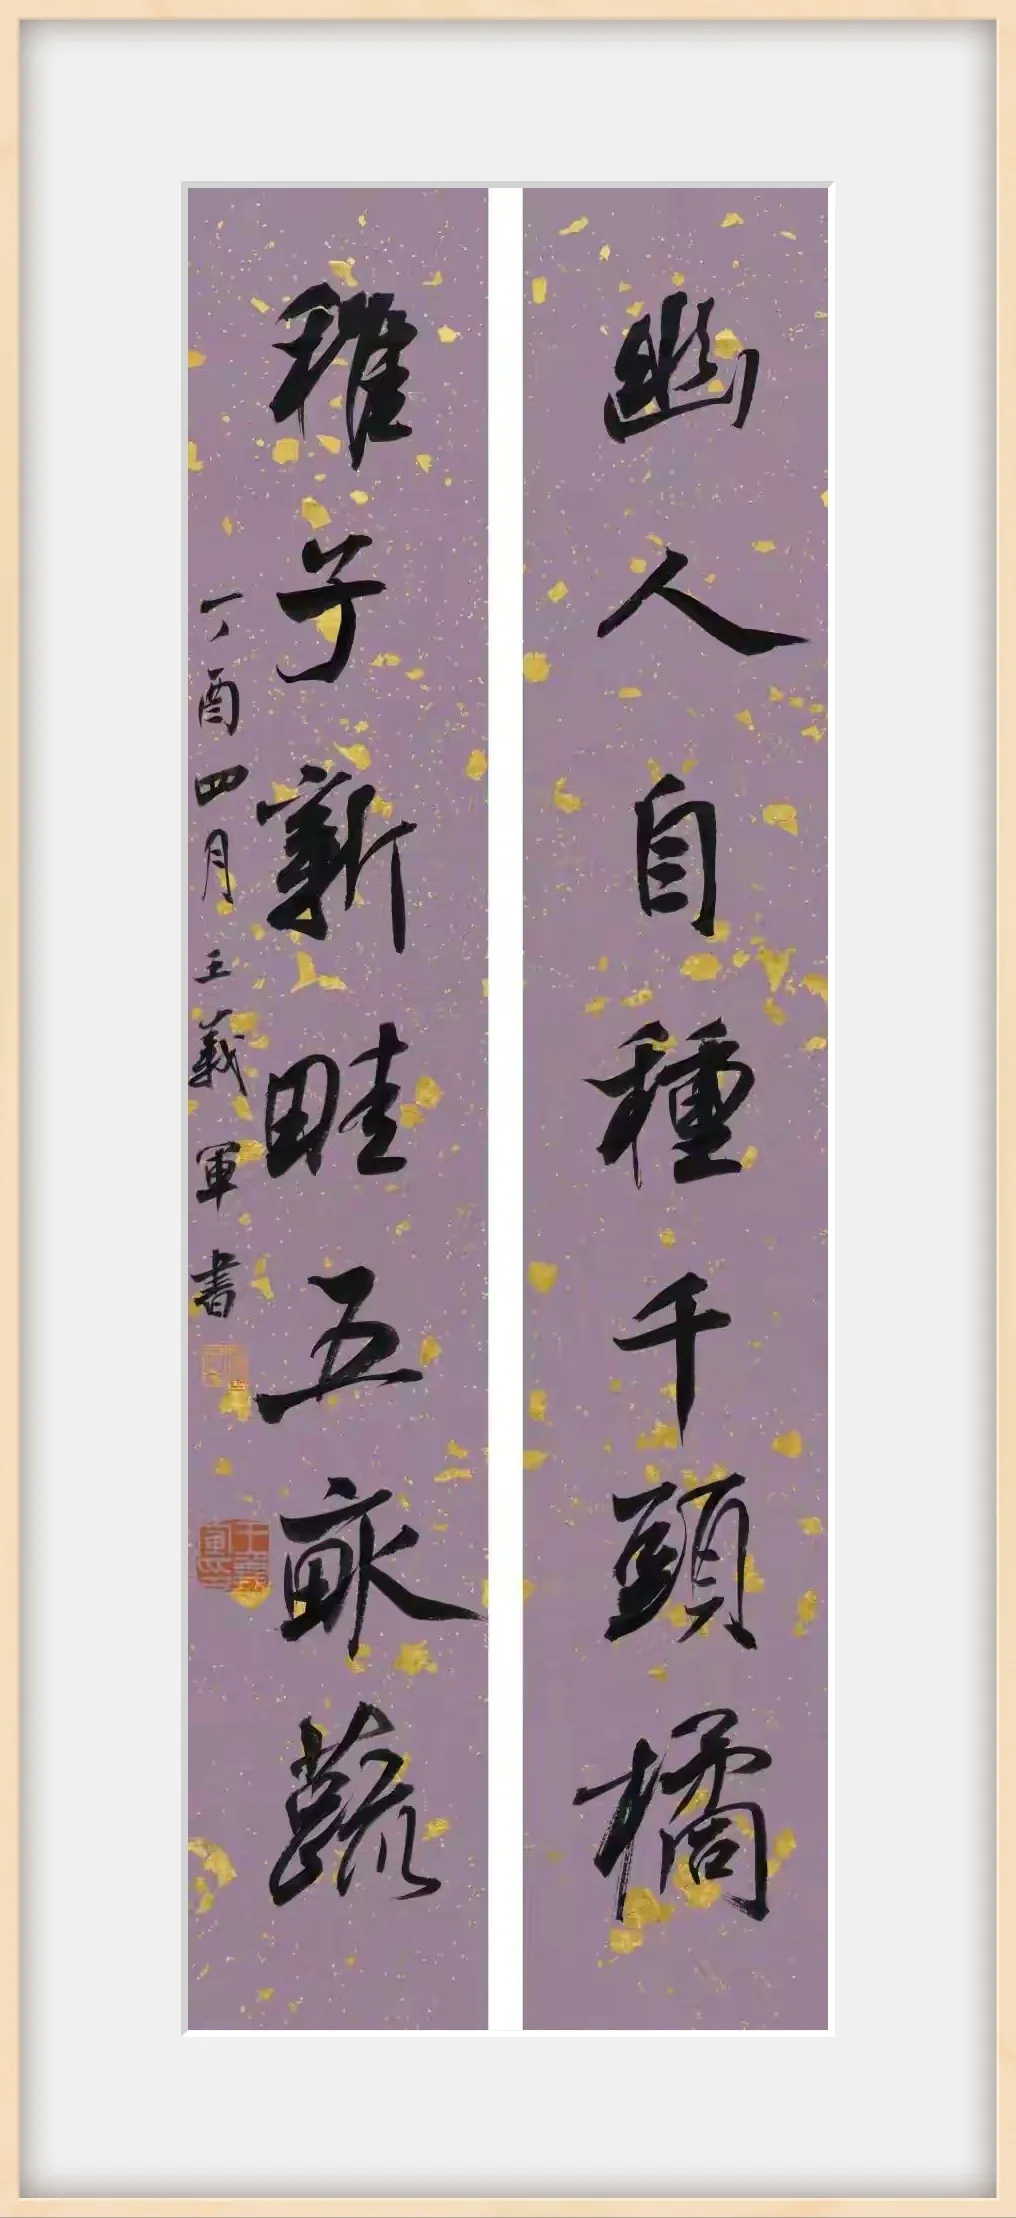 幽人自種千頭橘
稚子新畦五畝蔬
丁酉四月王義軍書